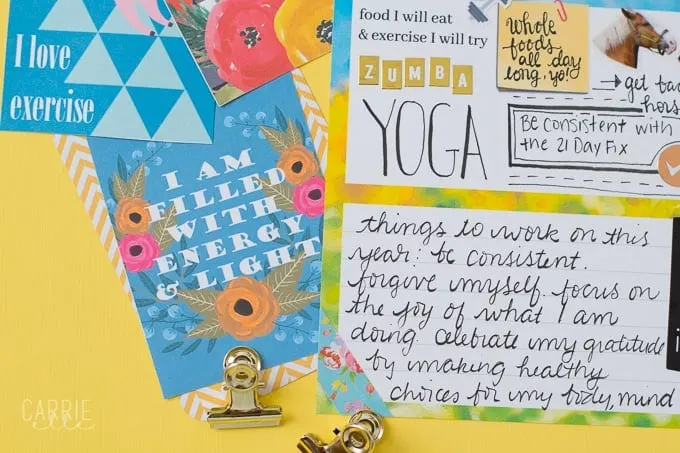 I love
exercise
I AM
FILLED
WITH
ENERGY
& LIGHT
food I will eat
& exercise I will try
ZUMBA
YOGA
whole
foods
all day
long, yo!
get
Be consistent with
the 21 Day Fix
things to work on this
year: be consistent.
forgive myself. focus on
the joy of what I am
doing. Celebrate my gratitude
by making healthy
choices for my body, mind
CARRIE
elle